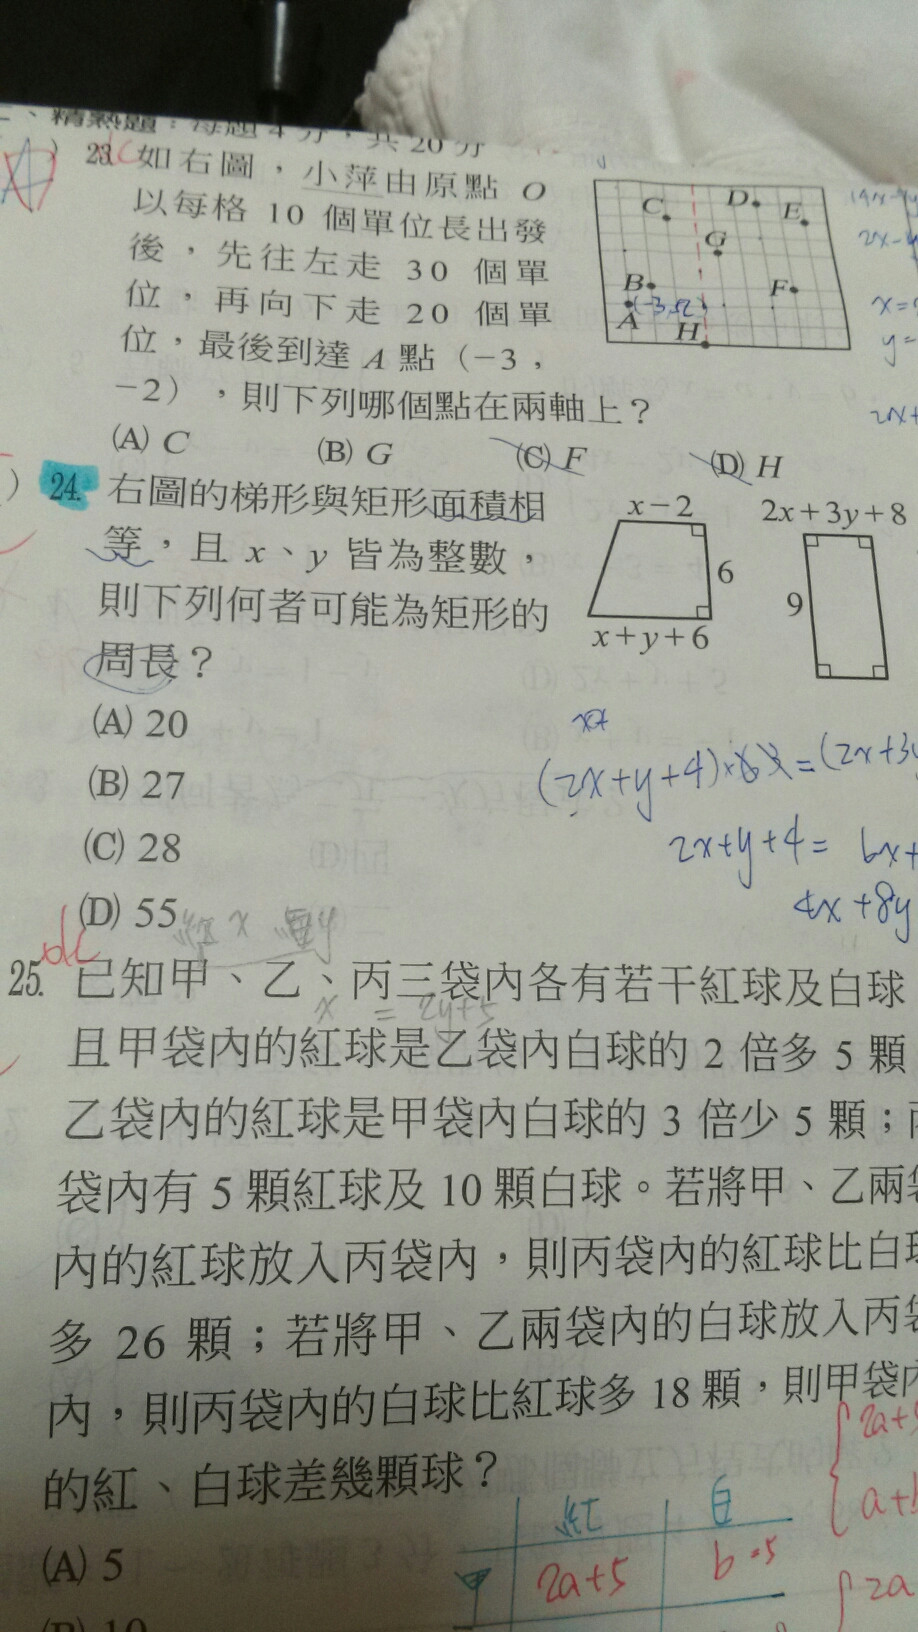 、精熟題：每題 4 分，共 20 分
23. 如右圖，小萍由原點 O
以每格 10 個單位長出發
後，先往左走 30 個單
位，再向下走 20 個單
位，最後到達 A 點（－3，
－2），則下列哪個點在兩軸上？
(A) C (B) G (C) F (D) H
C D E
G
B F
(-3,-2)
A H
24. 右圖的梯形與矩形面積相
等，且 x、y 皆為整數，
則下列何者可能為矩形的
周長？
x－2
6
x＋y＋6
2x＋3y＋8
9
(A) 20
(B) 27
(C) 28
(D) 55
(2x+y+4)
2x+y+4=
4x+8y
x = 2y+5
25. 已知甲、乙、丙三袋內各有若干紅球及白球
且甲袋內的紅球是乙袋內白球的 2 倍多 5 顆
乙袋內的紅球是甲袋內白球的 3 倍少 5 顆；
袋內有 5 顆紅球及 10 顆白球。若將甲、乙兩
內的紅球放入丙袋內，則丙袋內的紅球比白
多 26 顆；若將甲、乙兩袋內的白球放入丙
內，則丙袋內的白球比紅球多 18 顆，則甲袋
的紅、白球差幾顆球？
(A) 5
紅 白
甲 2a+5 b